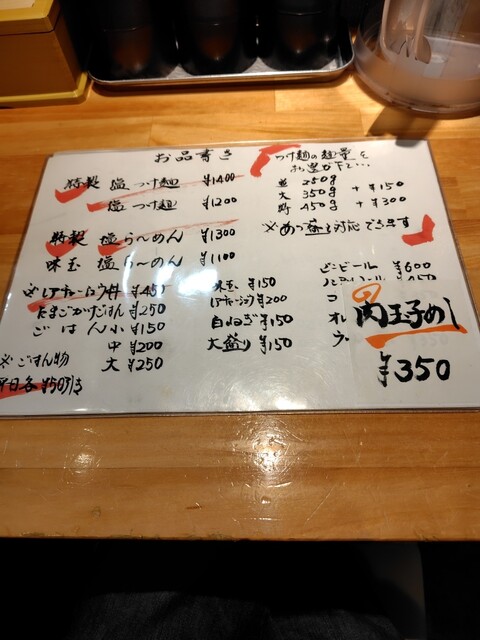 お品書き
特製 塩つけ麺 ¥1400
塩つけ麺 ¥1200
特製 塩らーめん ¥1300
味玉 塩らーめん ¥1100
※レアチャーシュウ丼 ¥450
たまごかけごはん ¥250
ごはん小 ¥150
中 ¥200
大 ¥250
※ごはん物
平日各¥50引き
味玉 ¥150
レアチャーシュウ ¥200
白ねぎ ¥150
大盛り ¥150
つけ麺の麺量を
お選び下さい
並 250g
大 350g +¥150
特 450g +¥300
※あつ盛も対応できます
ビンビール ¥600
ノンアルコール
コ
オレ
ウ
肉玉子めし
¥350